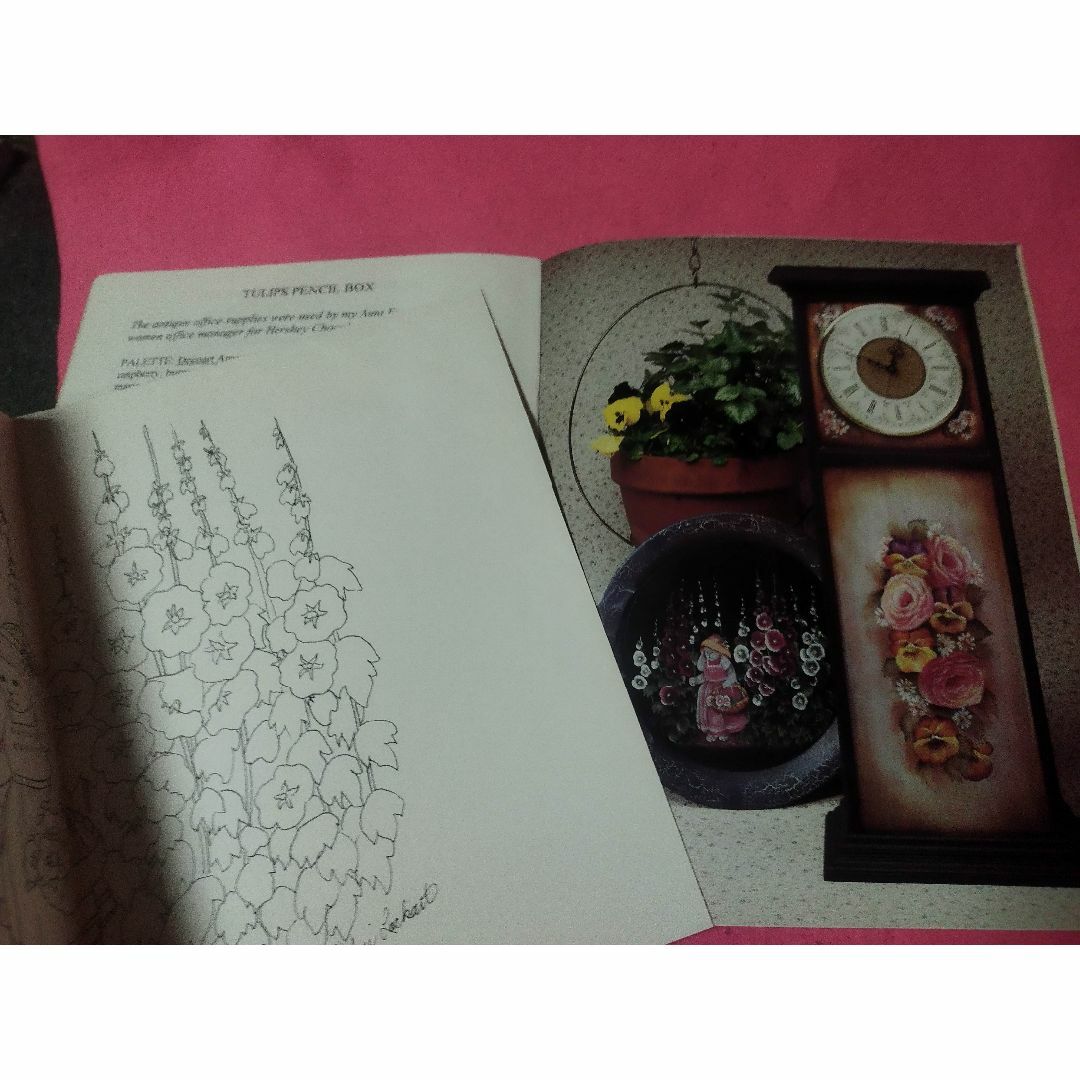 TULIPS PENCIL BOX
The antique office supplies were used by my Aunt
women office manager for Hershey
PALETTE: Decoart
raspberry,
Lockart